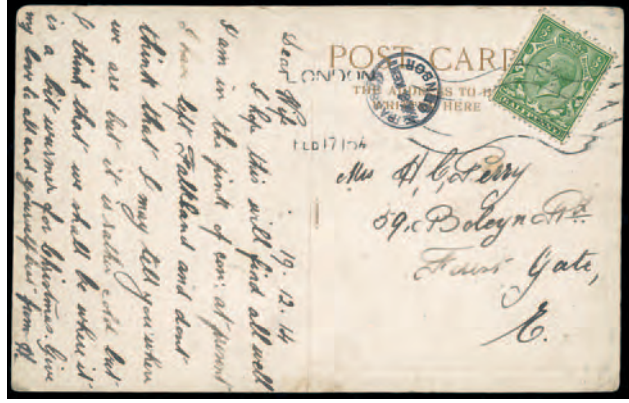 POST CARD
THE ADDRESS TO
HERE
LONDON
FEB 17 15
HALFPENNY
Mrs H. C. Perry
59, Boleyn Rd
Forest Gate,
E.
19.12.14
Dear Wife
I hope this will find all well
I am in the pink of con: at present
I have left Falkland and dont
think that I may tell you where
we are but it is rather cold but
I think that we shall be where it
is a bit warmer for Christmas. Give
my love to all and yourself from H.